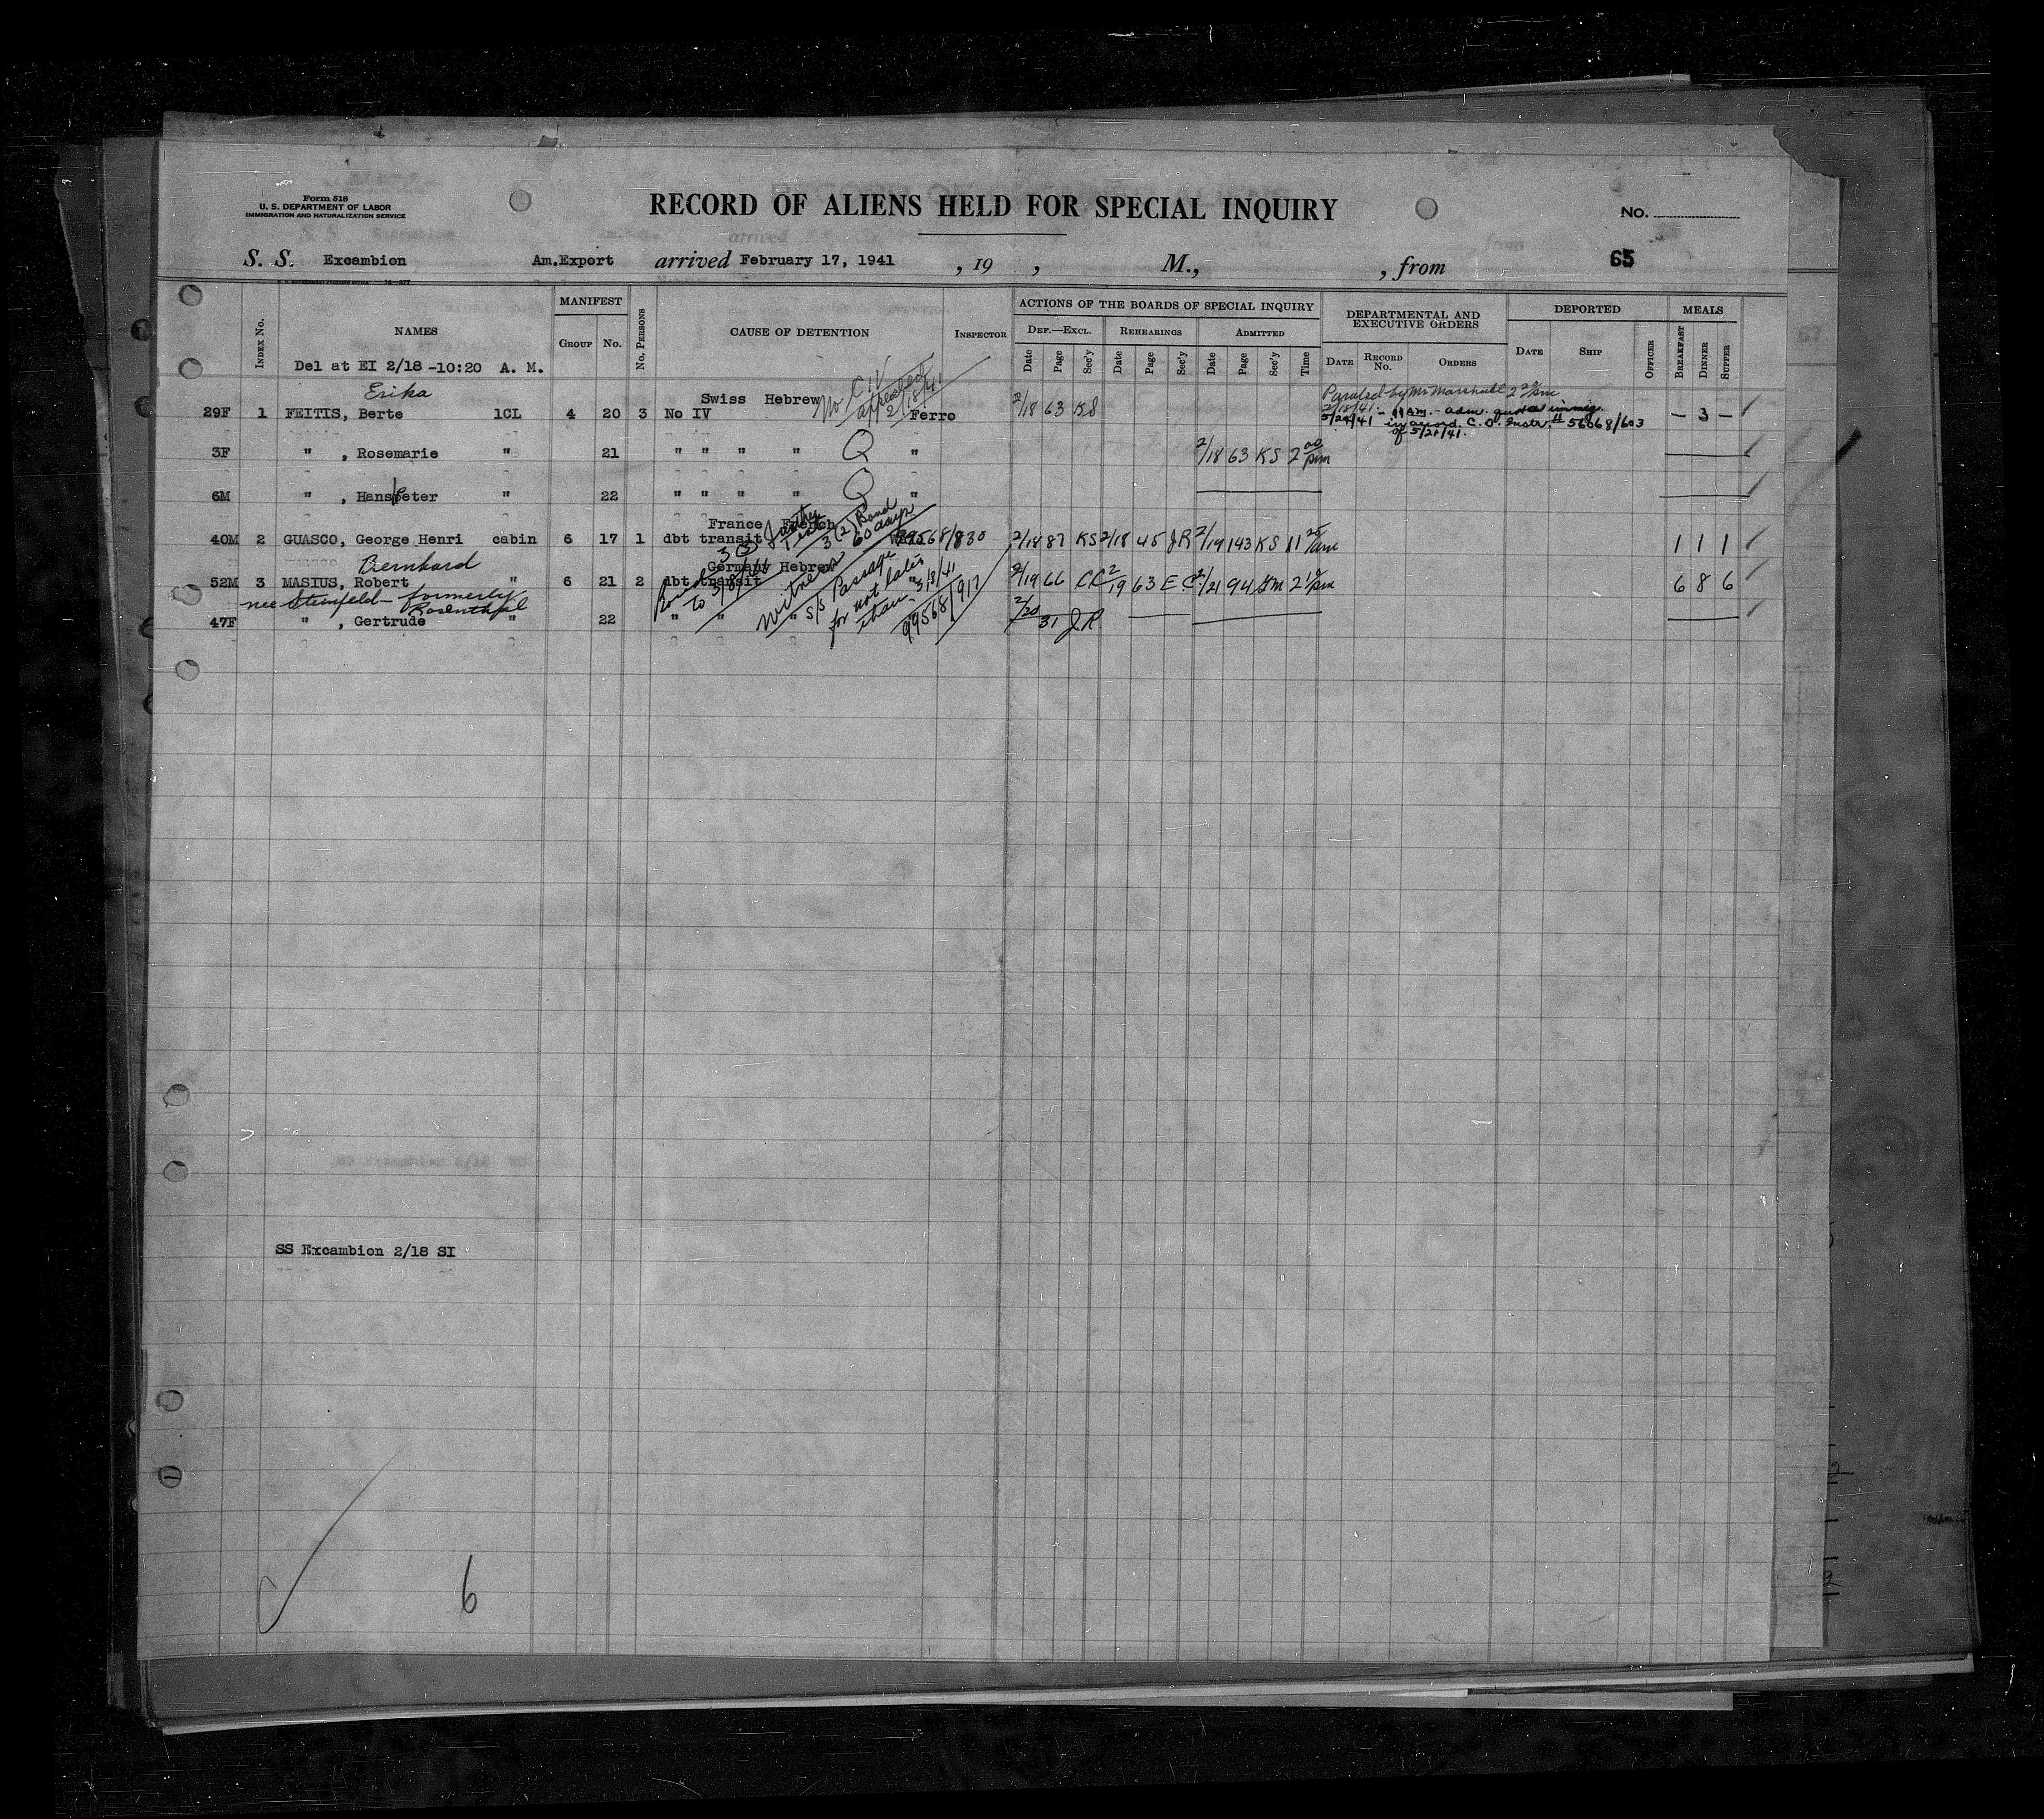 Form 518
U. S. DEPARTMENT OF LABOR
IMMIGRATION AND NATURALIZATION SERVICE
RECORD OF ALIENS HELD FOR SPECIAL INQUIRY
No.
S. S. Excambion Am.Export arrived February 17, 1941 , 19 , M., , from 65
INDEX No. NAMES MANIFEST GROUP No. No. PERSONS CAUSE OF DETENTION INSPECTOR
ACTIONS OF THE BOARDS OF SPECIAL INQUIRY
DEF.—EXCL. REHEARINGS ADMITTED
Date Page Sec'y Date Page Sec'y Date Page Sec'y Time
DEPARTMENTAL AND EXECUTIVE ORDERS
DATE RECORD No. ORDERS
DEPORTED
DATE SHIP OFFICER
MEALS
BREAKFAST DINNER SUPPER
Del at EI 2/18 -10:20 A. M.
Erika
Swiss Hebrew
No CIV
appealed
2/18/41
Paroled by Mr Marshall 2 20 pm
29F 1 FEITIS, Berte 1CL 4 20 3 No IV Ferro 2/18 63 KS 2/18/41 - 11 am. - adm. quota immig. – 3 –
5/24/41 in accord. C. O. Instr. # 56068/603
of 5/21/41.
3F " , Rosemarie " 21 " " " " Q " 2/18 63 KS 2 00 pm
6M " , Hanspeter " 22 " " " " Q "
France French
3 (2) Bond
60 days
40M 2 GUASCO, George Henri cabin 6 17 1 dbt transit 99568/830 2/18 87 KS 2/18 45 JR 2/19 143 KS 11 25 am 1 1 1
Bernhard
Germany Hebrew
52M 3 MASIUS, Robert " 6 21 2 dbt transit " 2/19 66 CC 2/19 63 EC 2/21 94 2 10 pm 6 8 6
nee Steinfeld - formerly
Rosenthal
47F " , Gertrude " 22 " " " 2/20 31 JR
Bond
to 3/8/41
Witness
S/S Passage
for not later
than 3/8/41
99568/917
SS Excambion 2/18 SI
6